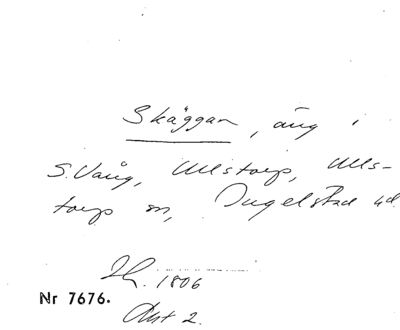 Skäggan, äng i
S. Vång, Ullstorp, Ulls-
torp sn, Ingelstad hd.
1806
Nr 7676.
Akt 2.